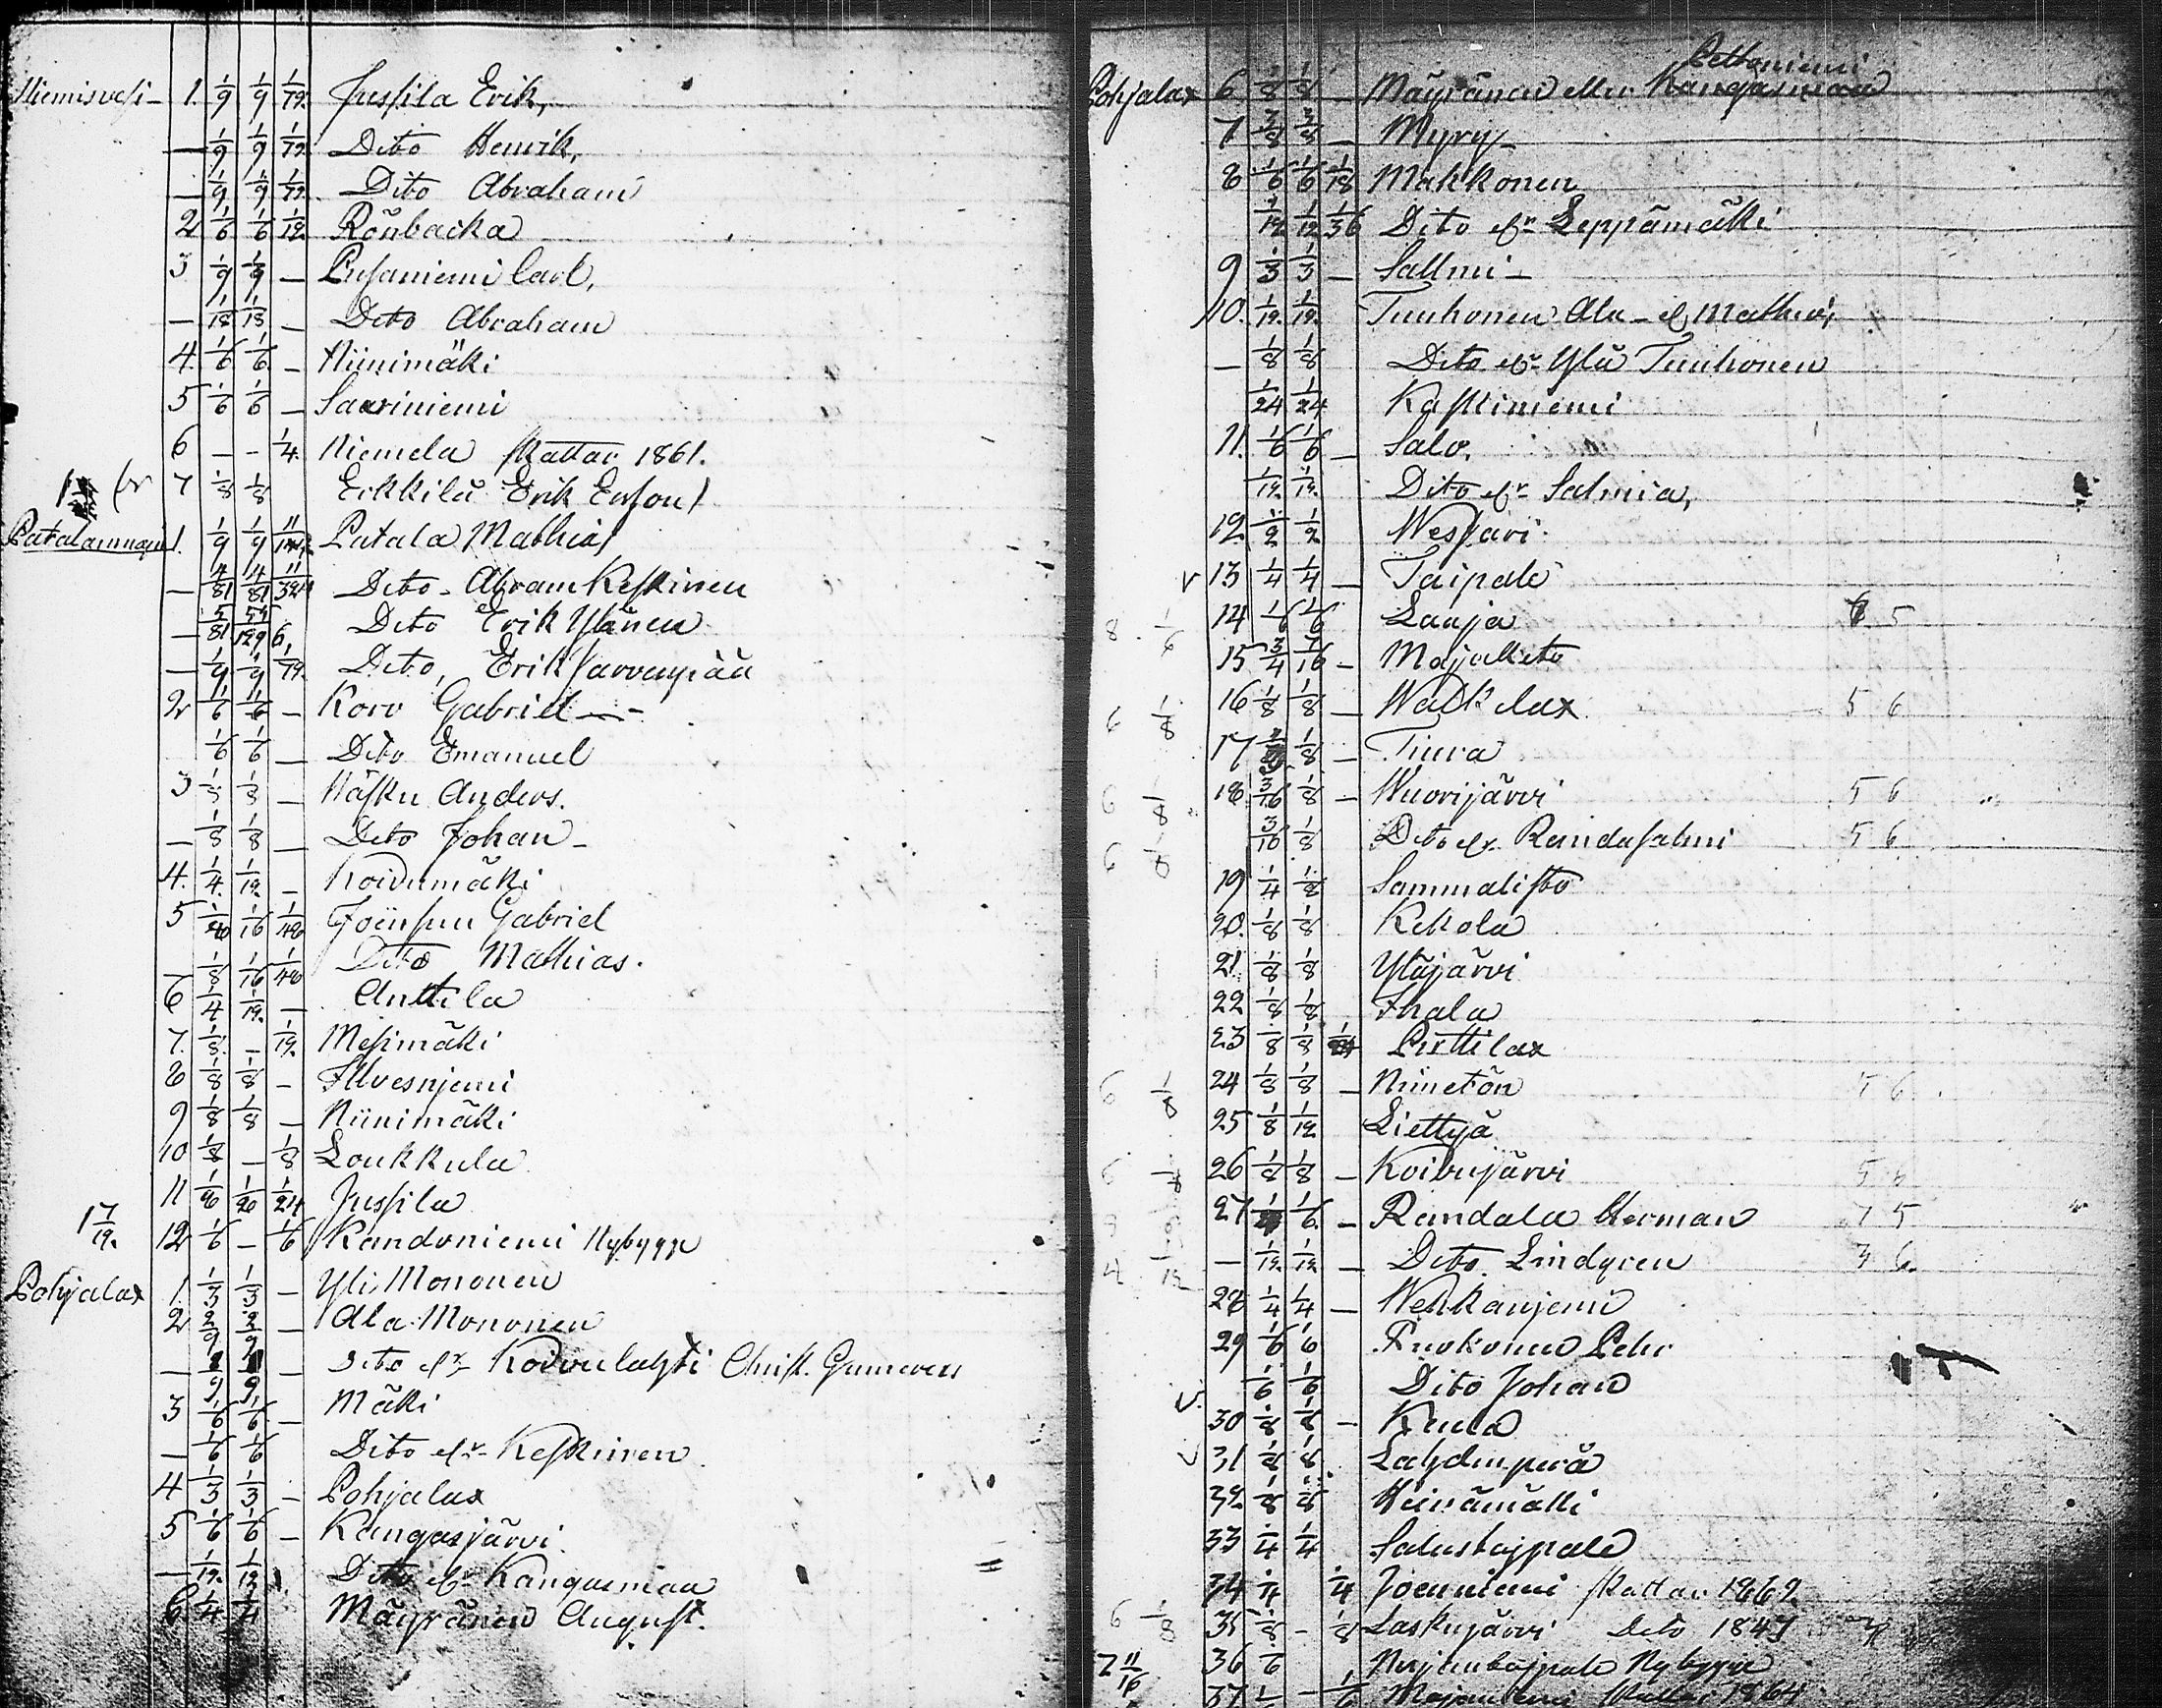 Niemisvesi - 1. 1/9 1/9 1/12. Jussila Erik,
— 1/9 1/9 1/12. Dito Henrik,
— 1/9 1/9 1/12. Dito Abraham
2 1/6 1/6 1/12. Rönbacka
3 1/9 1/9 — Pusaniemi Carl,
— 1/18 1/18 — Dito Abraham
4. 1/6 1/6 — Niinimäki
5 1/6 1/6 — Saariniemi
6 — - 1/4. Niemela skattar 1861.
7 1/8 1/8 Erkkilä Erik Ersson
1. 1/9 1/9 Patala Mathias
— 4/81 4/81 Dito - Abram Keskinen
— 5/81 Dito Erik Ylänen
— 1/9 1/9 1/12. Dito, Erik Tarvenpää
2 1/6 1/6 — Koro Gabriel —
1/6 1/6 — Dito Emanuel
3 1/8 1/8 — Häsku Anders.
— 1/8 1/8 — Dito Johan -
4. 1/4. 1/12. - Koivumäki
5 1/16 Gabriel
1/8 1/16 Dito Mathias.
6 1/4 1/12. — Anttila
7. 1/8. - 1/12. Mesimäki
8 1/8 1/8 - Ilvesnjemi
9 1/8 1/8 — Niinimäki
10 1/8 — 1/8 Loukkula
11 1/20 1/24 Jussila
12 1/6 — 1/6 Kandoniemi Nybygge
Pohjalax 1. 1/3 1/3 — Yli Mononen
2 2/9 2/9 — Ala Mononen
— Dito elr Koivulahti Christ.
3 1/6 1/6 — Mäki
— 1/6 1/6 Dito elr Keskinen
4 1/3 1/3 — Pohjalax
5 1/6 1/6 — Kangasjärvi.
— 1/12. 1/12 Dito elr Kangasmaa
6 1/4 1/4 Mäyränen August.
17/12.
Pohjalax 6 1/8 1/8 — Mäyränen eller Kangasmaa
Peltoniemi
7 3/8 3/8 — Myry -
8 1/6 1/6 1/18 Makkonen
1/12 1/12 1/36 Dito elr Leppämäki
9 1/3 1/3 — Sallmi —
10. 1/12. 1/12. Tuuhonen Ala - el Mathias
— 1/8 1/8 Dito elr Ylä Tuuhonen
1/24 1/24 Kastiniemi
11. 1/6 1/6 — Salo.
1/12. 1/12. Dito elr Salmia,
12. 1/2 1/2 Wessari
v 13 1/4 1/4 — Taipale
8. 1/6 14 1/6 1/6 Laaja 5
15 3/4 7/16 - Majalieto
6 1/8 16 1/8 1/8 — Walkelax 5 6
17 1/8 — Tiura
6 1/8 18 3/16 1/8 — Wuorijärvi 5 6
6 1/8 3/16 1/8 Dito elr Randasalmi 5 6
19 1/4 1/8 Sammalisto
20. 1/8 1/8 Kekola
21 1/8 1/8 Yläjärvi
22 1/8 1/8 Ihala
23 1/8 1/8 Perttilax
6 1/8 24 1/8 1/8 — Niimetön 5 6
25 1/8 1/12 Liettyä
6 1/8 26 1/8 1/8 — Koivujärvi 5 6
27 1/6. — Randala Herman 7 5
4 1/12 — 1/12. 1/12 — Dito. Lindgren 3 6.
28 1/4 1/4 — Wehkanjemi
29 1/6 1/6 Ruokonen Pehr
1/6 1/6 Dito Johan
v. 30 1/8 1/8 — Kuula
v 31 1/8 1/8 Lahdenperä
32. 1/8 1/8 Heinämäki
33 1/4 1/4 Salustajpale
34 1/4 1/4 Joenniemi skattar 1862
6 1/8 35 1/8 - 1/8 Laskujärvi Dito 1847
2 11/16 36 1/6 Nybygge
37 skattar 1864